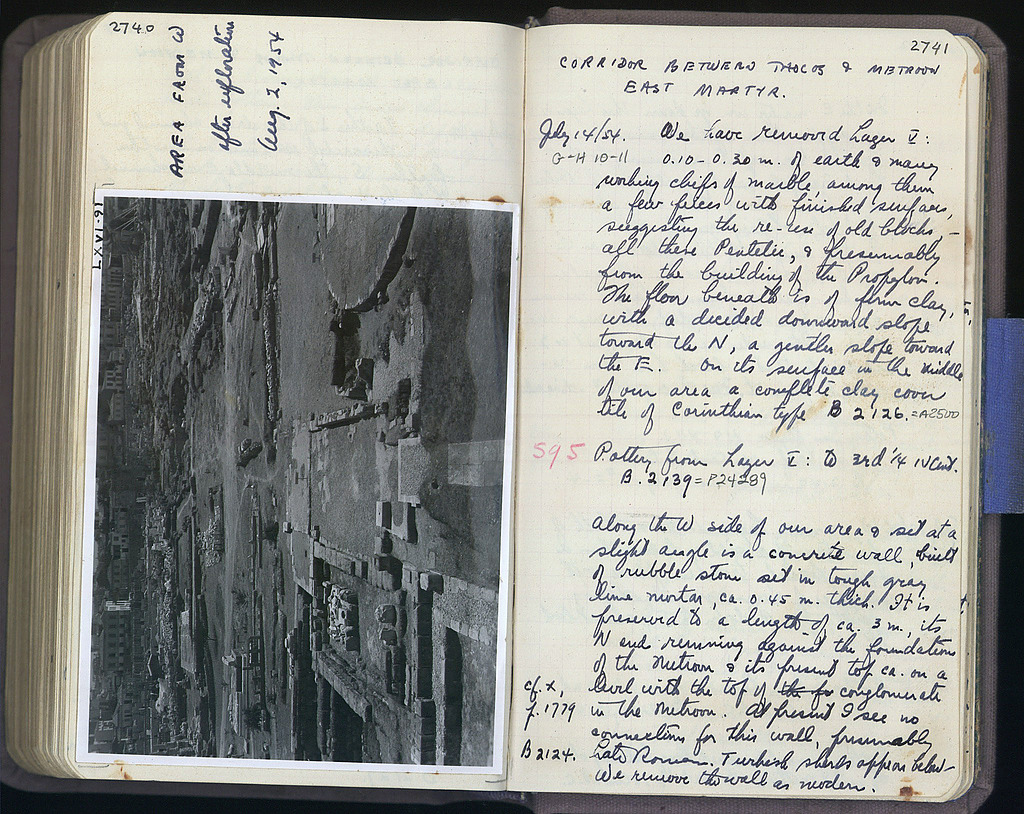 2740
AREA FROM W
after exploration
Aug. 2, 1954
LXVI-91
2741
CORRIDOR BETWEEN THOLOS & METROON
EAST MARTYR.
July 14/54. We have removed Layer V:
G-H 10-11 0.10-0.30 m. of earth & many
working chips of marble, among them
a few pieces with finished surfaces,
suggesting the re-use of old blocks, –
all these Pentelic, & presumably
from the building of the Propylon.
The floor beneath is of firm clay,
with a decided downward slope
toward the N, a gentler slope toward
the E. On its surface in the middle
of our area a complete clay cover
tile of Corinthian type B 2126. =A2500
595 Pottery from Layer V: to 3rd ¼ IV Cent.
B. 2139 = P24289
Along the W side of our area & set at a
slight angle is a concrete wall, built
of rubble stone set in tough gray
lime mortar, ca. 0.45 m. thick. It is
preserved to a length of ca. 3 m., its
N end running against the foundations
of the Metroon & its present top ca. on a
cf. X, level with the top of the conglomerate
p. 1779 in the Metroon. At present I see no
connections for this wall, presumably
B 2124. Late Roman. Turkish sherds appear below –
We remove the wall as modern.